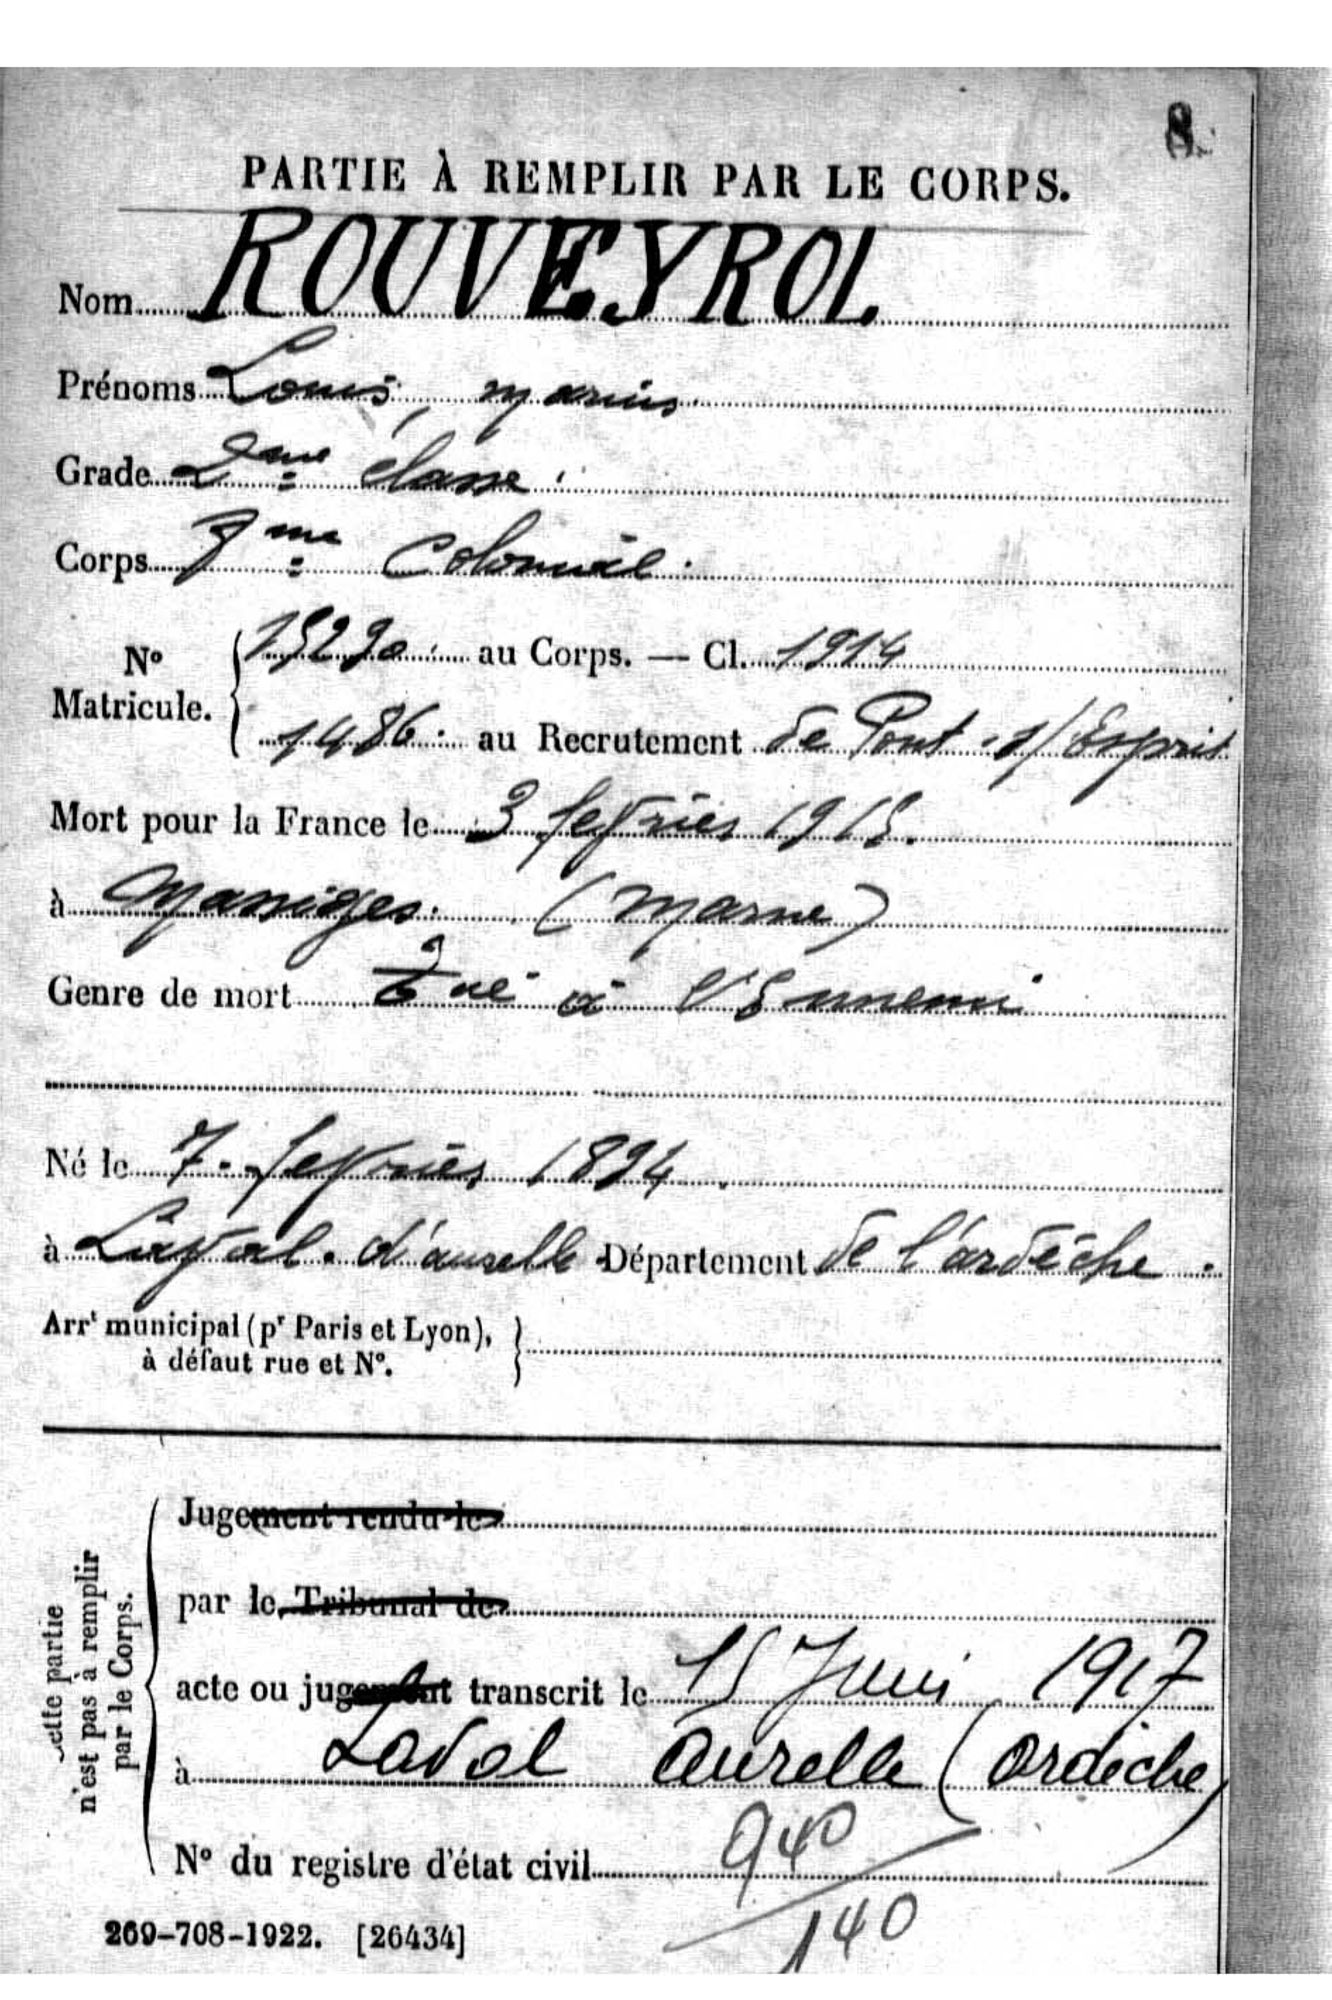 8.
PARTIE À REMPLIR PAR LE CORPS.
Nom ROUVEYROL
Prénoms Louis, marius
Grade 2me classe
Corps me Colonial
No Matricule. { au Corps. — Cl. 1914
1486 au Recrutement de Pont-s/Esprit
Mort pour la France le 3 fevrier 1915.
à Massiges. (Marne)
Genre de mort Tué à l'Ennemi
Né le 7 - fevrier 1894
à Laval. d'aurelle Département de l'ardèche.
Arrt municipal (pr Paris et Lyon), }
à défaut rue et No.
Jugement rendu le
par le Tribunal de
acte ou jugement transcrit le 15 Juin 1917
à Laval Aurelle (Ardèche)
No du registre d'état civil 940/140
Cette partie
n'est pas à remplir
par le Corps.
269-708-1922. [26434]